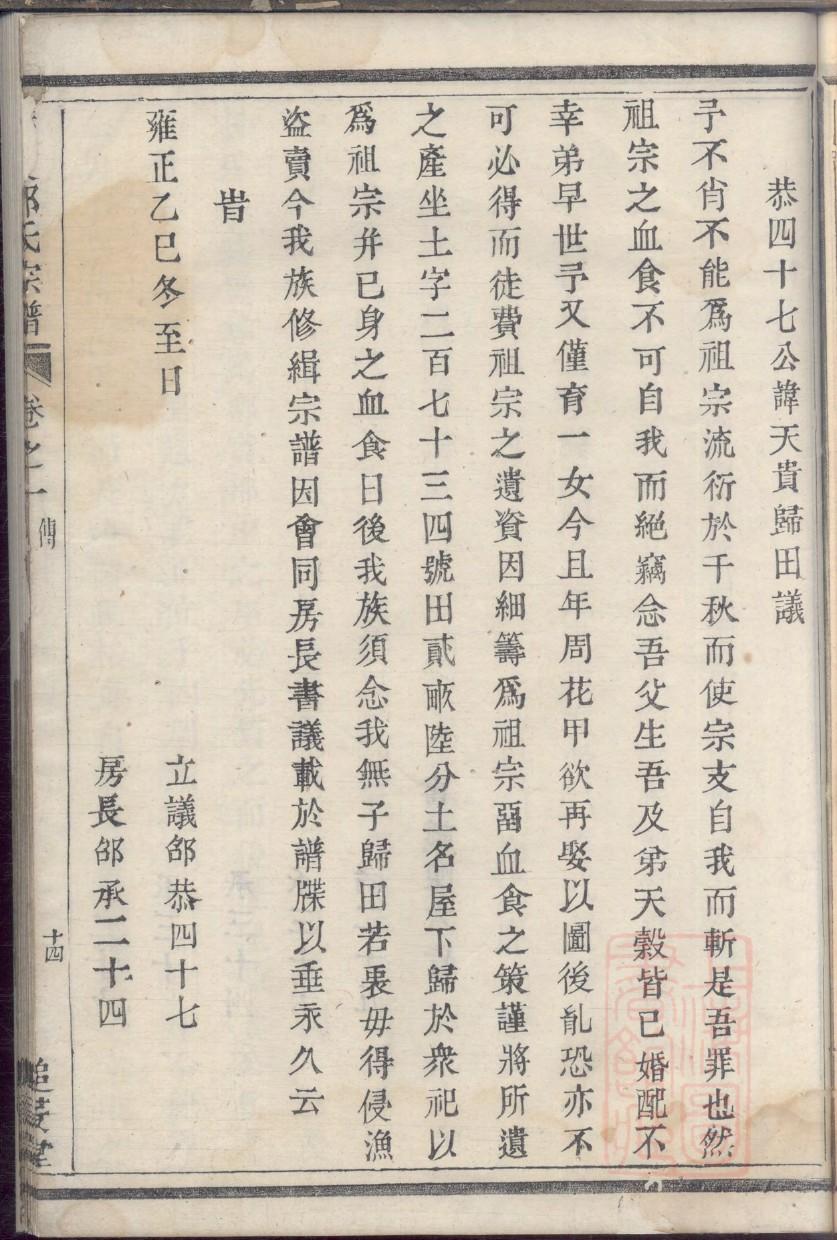 恭四十七公諱天貴歸田議
予不肖不能爲祖宗流衍於千秋而使宗支自我而斬是吾罪也然
祖宗之血食不可自我而絕竊念吾父生吾及弟天穀皆已婚配不
幸弟早世予又僅育一女今且年周花甲欲再娶以圖後胤恐亦不
可必得而徒費祖宗之遺資因細籌爲祖宗畱血食之策謹將所遺
之產坐土字二百七十三四號田貳畝陸分土名屋下歸於衆祀以
爲祖宗并已身之血食日後我族須念我無子歸田若裏毋得侵漁
盜賣今我族修緝宗譜因會同房長書議載於譜牒以垂永久云
旹
雍正乙巳冬至日
立議邰恭四十七
房長邰承二十四
氏宗譜
卷之一
傳
十四
追蓼堂